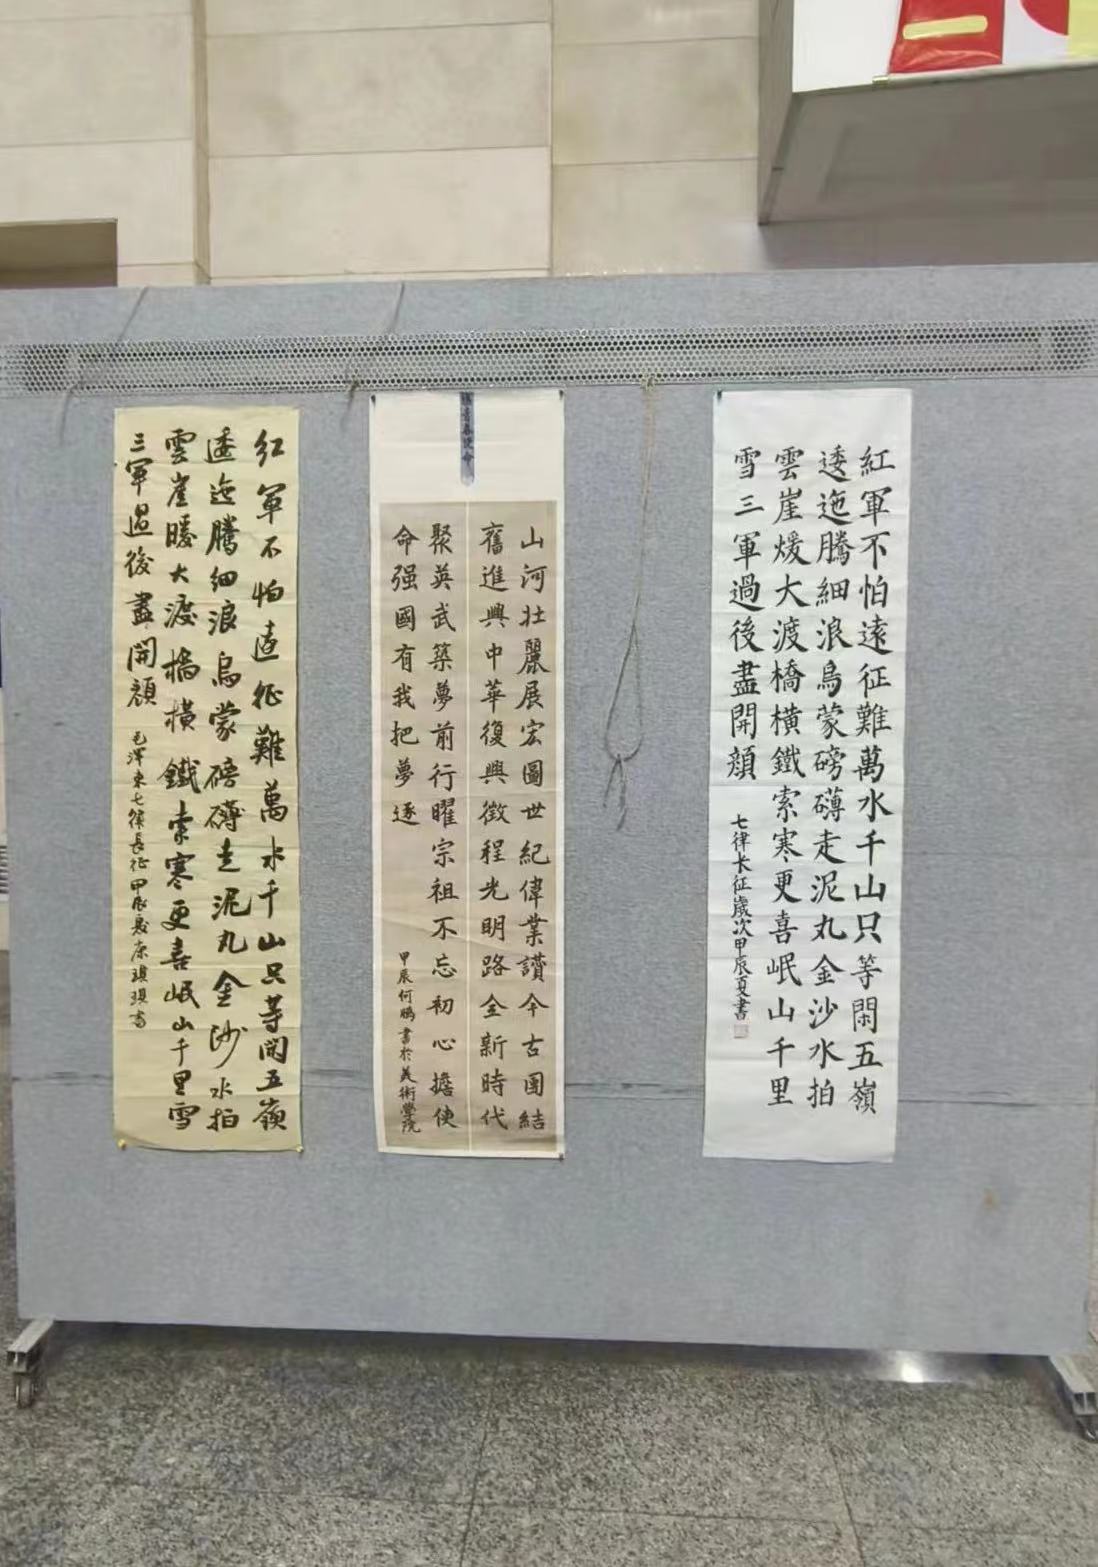 紅軍不怕遠征難萬水千山只等閑五嶺
逶迤騰細浪烏蒙磅礴走泥丸金沙水拍
雲崖煖大渡橋橫鐵索寒更喜岷山千里
雪三軍過後盡開顔
七律长征歲次甲辰夏書
山河壮麗展宏圖世紀偉業讚今古團結
奮進興中華復興徵程光明路全新時代
聚英武築夢前行曜宗祖不忘初心擔使
命强國有我把夢逐
甲辰何鵬書於美術學院
红軍不怕遠征難萬水千山只等閑五嶺
逶迤騰細浪烏蒙磅礴走泥丸金沙水拍
雲崖暖大渡橋橫鐵索寒更喜岷山千里雪
三軍過後盡開顔
毛澤東七律長征甲辰夏康